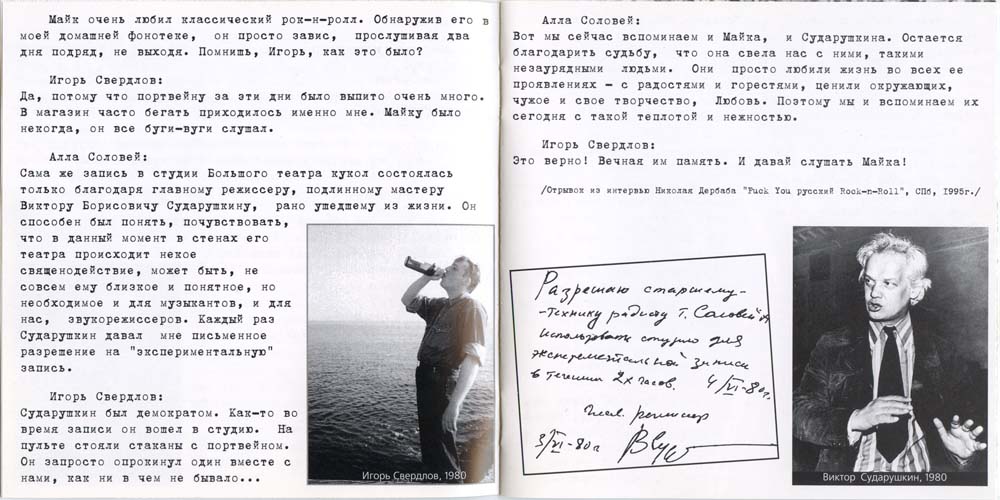 Майк очень любил классический рок-н-ролл. Обнаружив его в
моей домашней фонотеке, он просто завис, прослушивая два
дня подряд, не выходя. Помнишь, Игорь, как это было?
Игорь Свердлов:
Да, потому что портвейну за эти дни было выпито очень много.
В магазин часто бегать приходилось именно мне. Майку было
некогда, он все буги-вуги слушал.
Алла Соловей:
Сама же запись в студии Большого театра кукол состоялась
только благодаря главному режиссеру, подлинному мастеру
Виктору Борисовичу Сударушкину, рано ушедшему из жизни. Он
способен был понять, почувствовать,
что в данный момент в стенах его
театра происходит некое
священодействие, может быть, не
совсем ему близкое и понятное, но
необходимое и для музыкантов, и для
нас, звукорежиссеров. Каждый раз
Сударушкин давал мне письменное
разрешение на "экспериментальную"
запись.
Игорь Свердлов:
Сударушкин был демократом. Как-то во
время записи он вошел в студию. На
пульте стояли стаканы с портвейном.
Он запросто опрокинул один вместе с
нами, как ни в чем не бывало...
Игорь Свердлов, 1980
Алла Соловей:
Вот мы сейчас вспоминаем и Майка, и Сударушкина. Остается
благодарить судьбу, что она свела нас с ними, такими
незаурядными людьми. Они просто любили жизнь во всех ее
проявлениях - с радостями и горестями, ценили окружающих,
чужое и свое творчество, Любовь. Поэтому мы и вспоминаем их
сегодня с такой теплотой и нежностью.
Игорь Свердлов:
Это верно! Вечная им память. И давай слушать Майка!
/Отрывок из интервью Николая Дербаба "Fuck You русский Rock-n-Roll", СПб, 1995г./
Разрешаю старшему-
-технику радисту т. Соловей А
использовать студию для
эксперементальной записи
в течении 2х часов. 4/VI-80г.
Глав. режиссер
3/VI-80г
Виктор Сударушкин, 1980